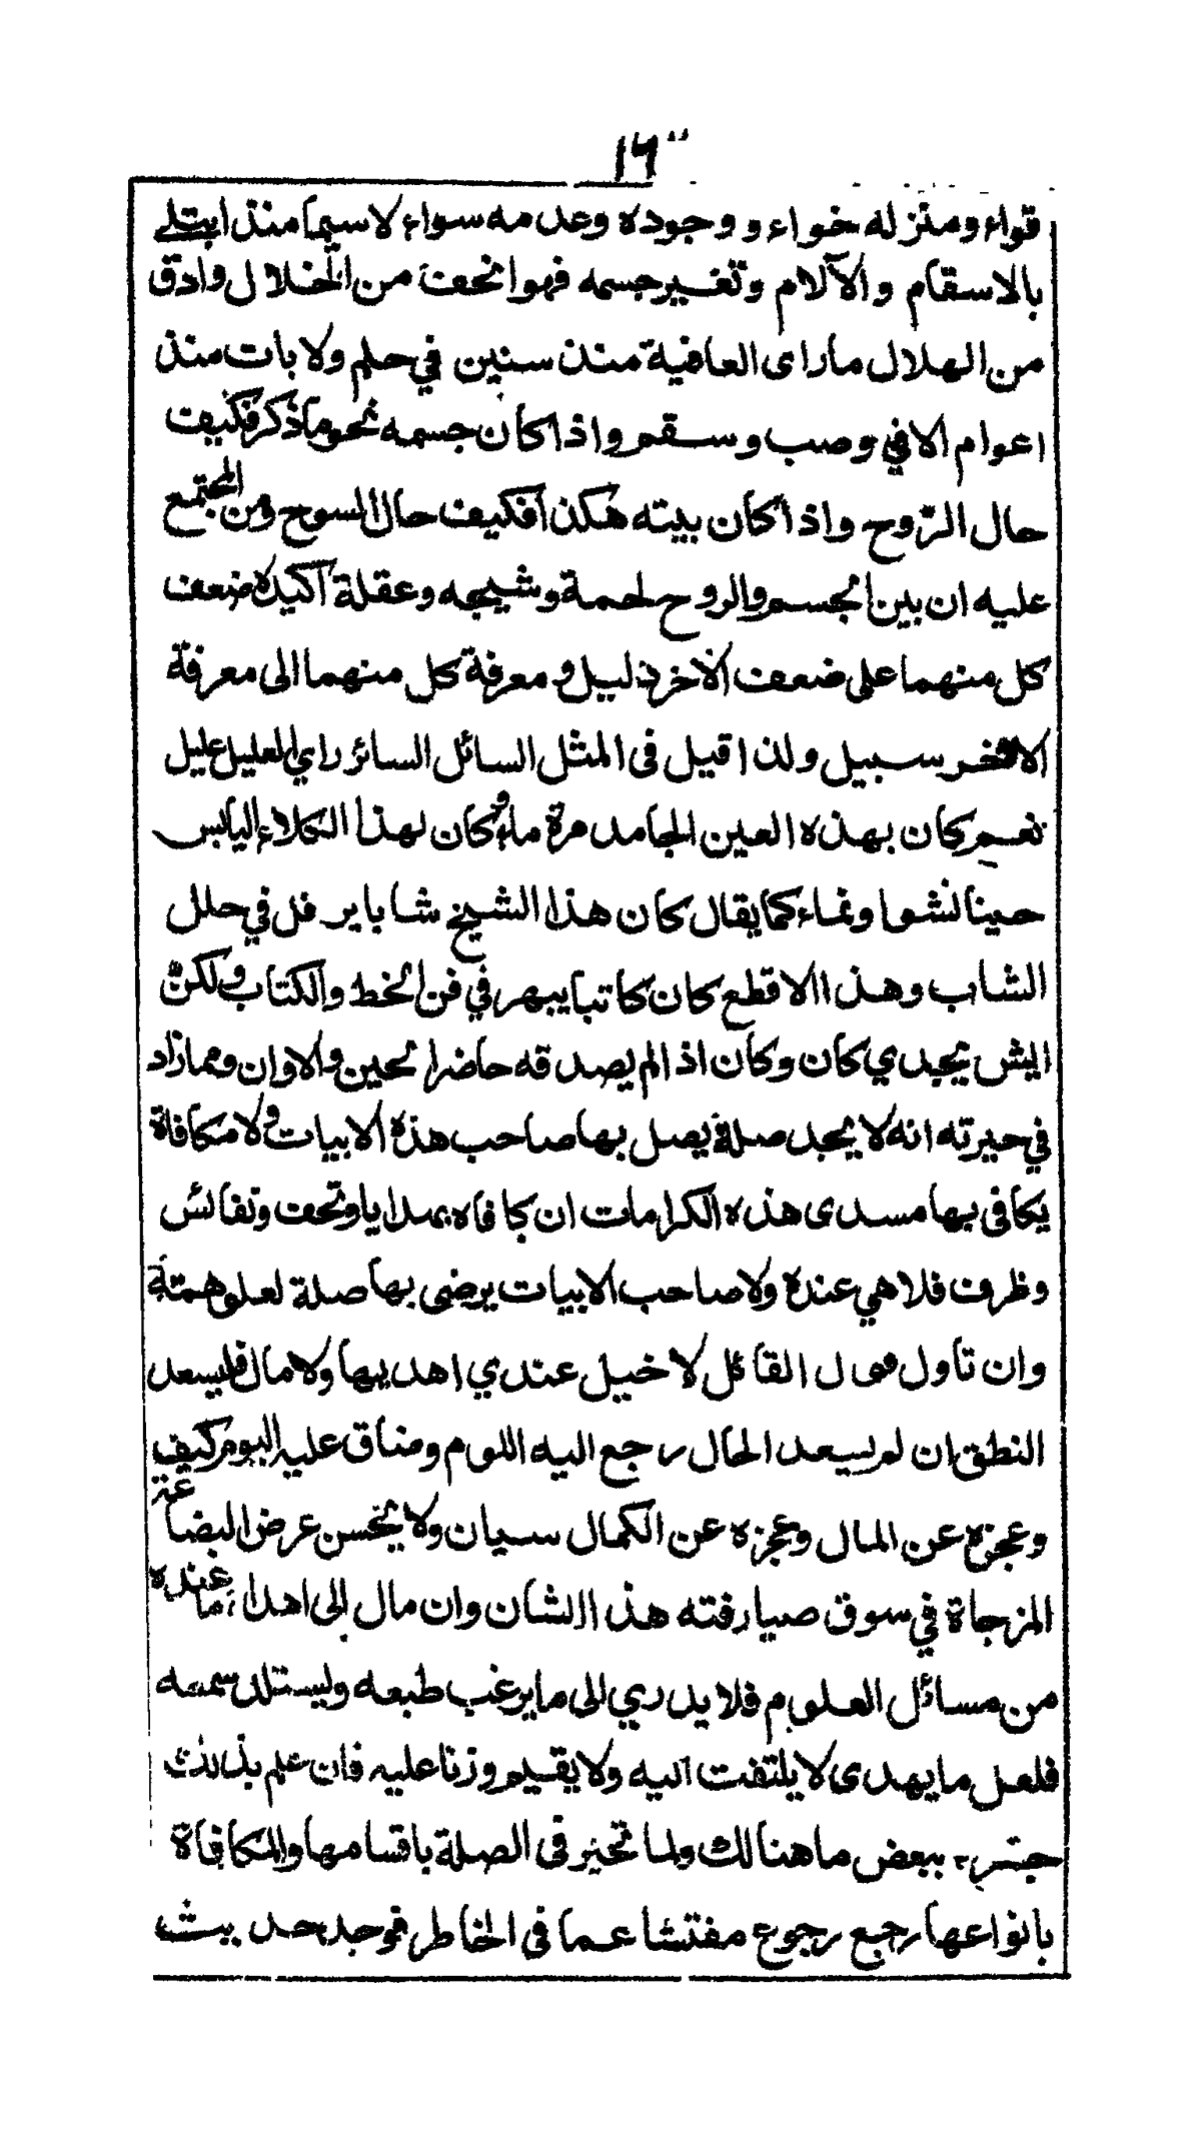 ١٦٣
قواء ومنزله خواء و وجوده وعدمه سواء لاسيما منذ ابتلى
بالاسقام والآلام وتغير جسمه فهو انحف من الخلال وادق
من الهلال ماراى العافية منذ سنين في حلم ولا بات منذ
اعوام الا في وصب وسقم واذا كان جسمه نحو ما ذكر فكيف
حال الروح واذا كان بيته هكذا فكيف حال السوح ومن المجتمع
عليه ان بين الجسم والروح لحمة وشيجه وعقلة اكيده ضعف
كل منهما على ضعف الآخر دليل ومعرفة كل منهما الى معرفة
الآخر سبيل ولذا قيل فى المثل السائل السائر راي العليل عليل
نعم كان بهذه العين الجامده مرة ماء وكان لهذا الكلاء اليابس
حينا نشوا ونماء كما يقال كان هذا الشيخ شابا يرفل في حلل
الشاب وهذا الاقطع كان كاتبا يبهر في فن الخط والكتاب ولكن
ايش يجدي كان وكان اذا لم يصدقه حاضر الحين والاوان ومما زاد
في حيرته انه لا يجد صلة يصل بها صاحب هذه الابيات ولا مكافاة
يكافى بها مسدى هذه الكرامات ان كافاه بهدايا وتحف ونفائس
وظرف فلا هي عنده ولا صاحب الابيات يرضى بها صلة لعلو همته
وان تاول قول القائل لا خيل عندي اهديها ولا مال فليسعد
النطق ان لم يسعد الحال رجع اليه اللوم وضاق عليه اليوم كيف
وعجزه عن المال وعجزه عن الكمال سيان ولا يحسن عرض البضاعة
المزجاة في سوق صيارفته هذا الشان وان مال الى اهداء ما عنده
من مسائل العلوم فلا يدري الى ما يرغب طبعه ويستلذ سمعه
فلعل ما يهدى لا يلتفت اليه ولا يقيم وزنا عليه فان علم بذالك
ببعض ما هنالك ولما تحير فى الصلة باقسامها والمكافاة
بانواعها رجع رجوع مفتشا عما فى الخاطر فوجد حد بيث